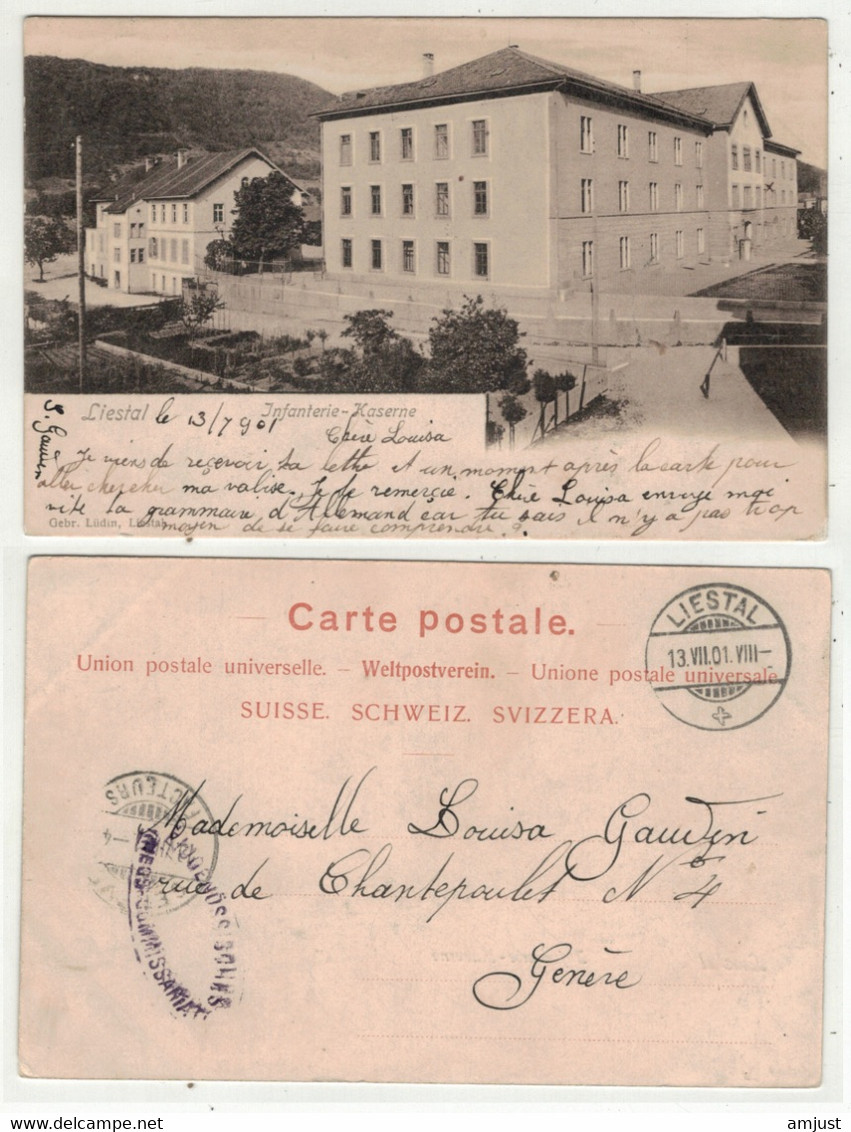 Liestal le 13/7 901 Infanterie-Kaserne
Chère Louisa
Je viens de reçevoir ta lettre et un moment après la carte pour
aller chercher ma valise. Je te remerçie. Chère Louisa envoye moi
vite ta grammaire d'Allemand car tu sais il n'y a pas trop
moyen de se faire comprendre.
S. Gauden
Gebr. Lüdin, Liestal
Carte postale.
Union postale universelle. — Weltpostverein. — Unione postale universale
SUISSE. SCHWEIZ. SVIZZERA.
LIESTAL
13.VII.01.VIII—
FACTEURS
EIDGENÖSSISCHES
KRIEGS-COMMISSARIAT
Mademoiselle Louisa Gauden
rue de Chantepoulet N° 4
Genève
delcampe.net
amjust